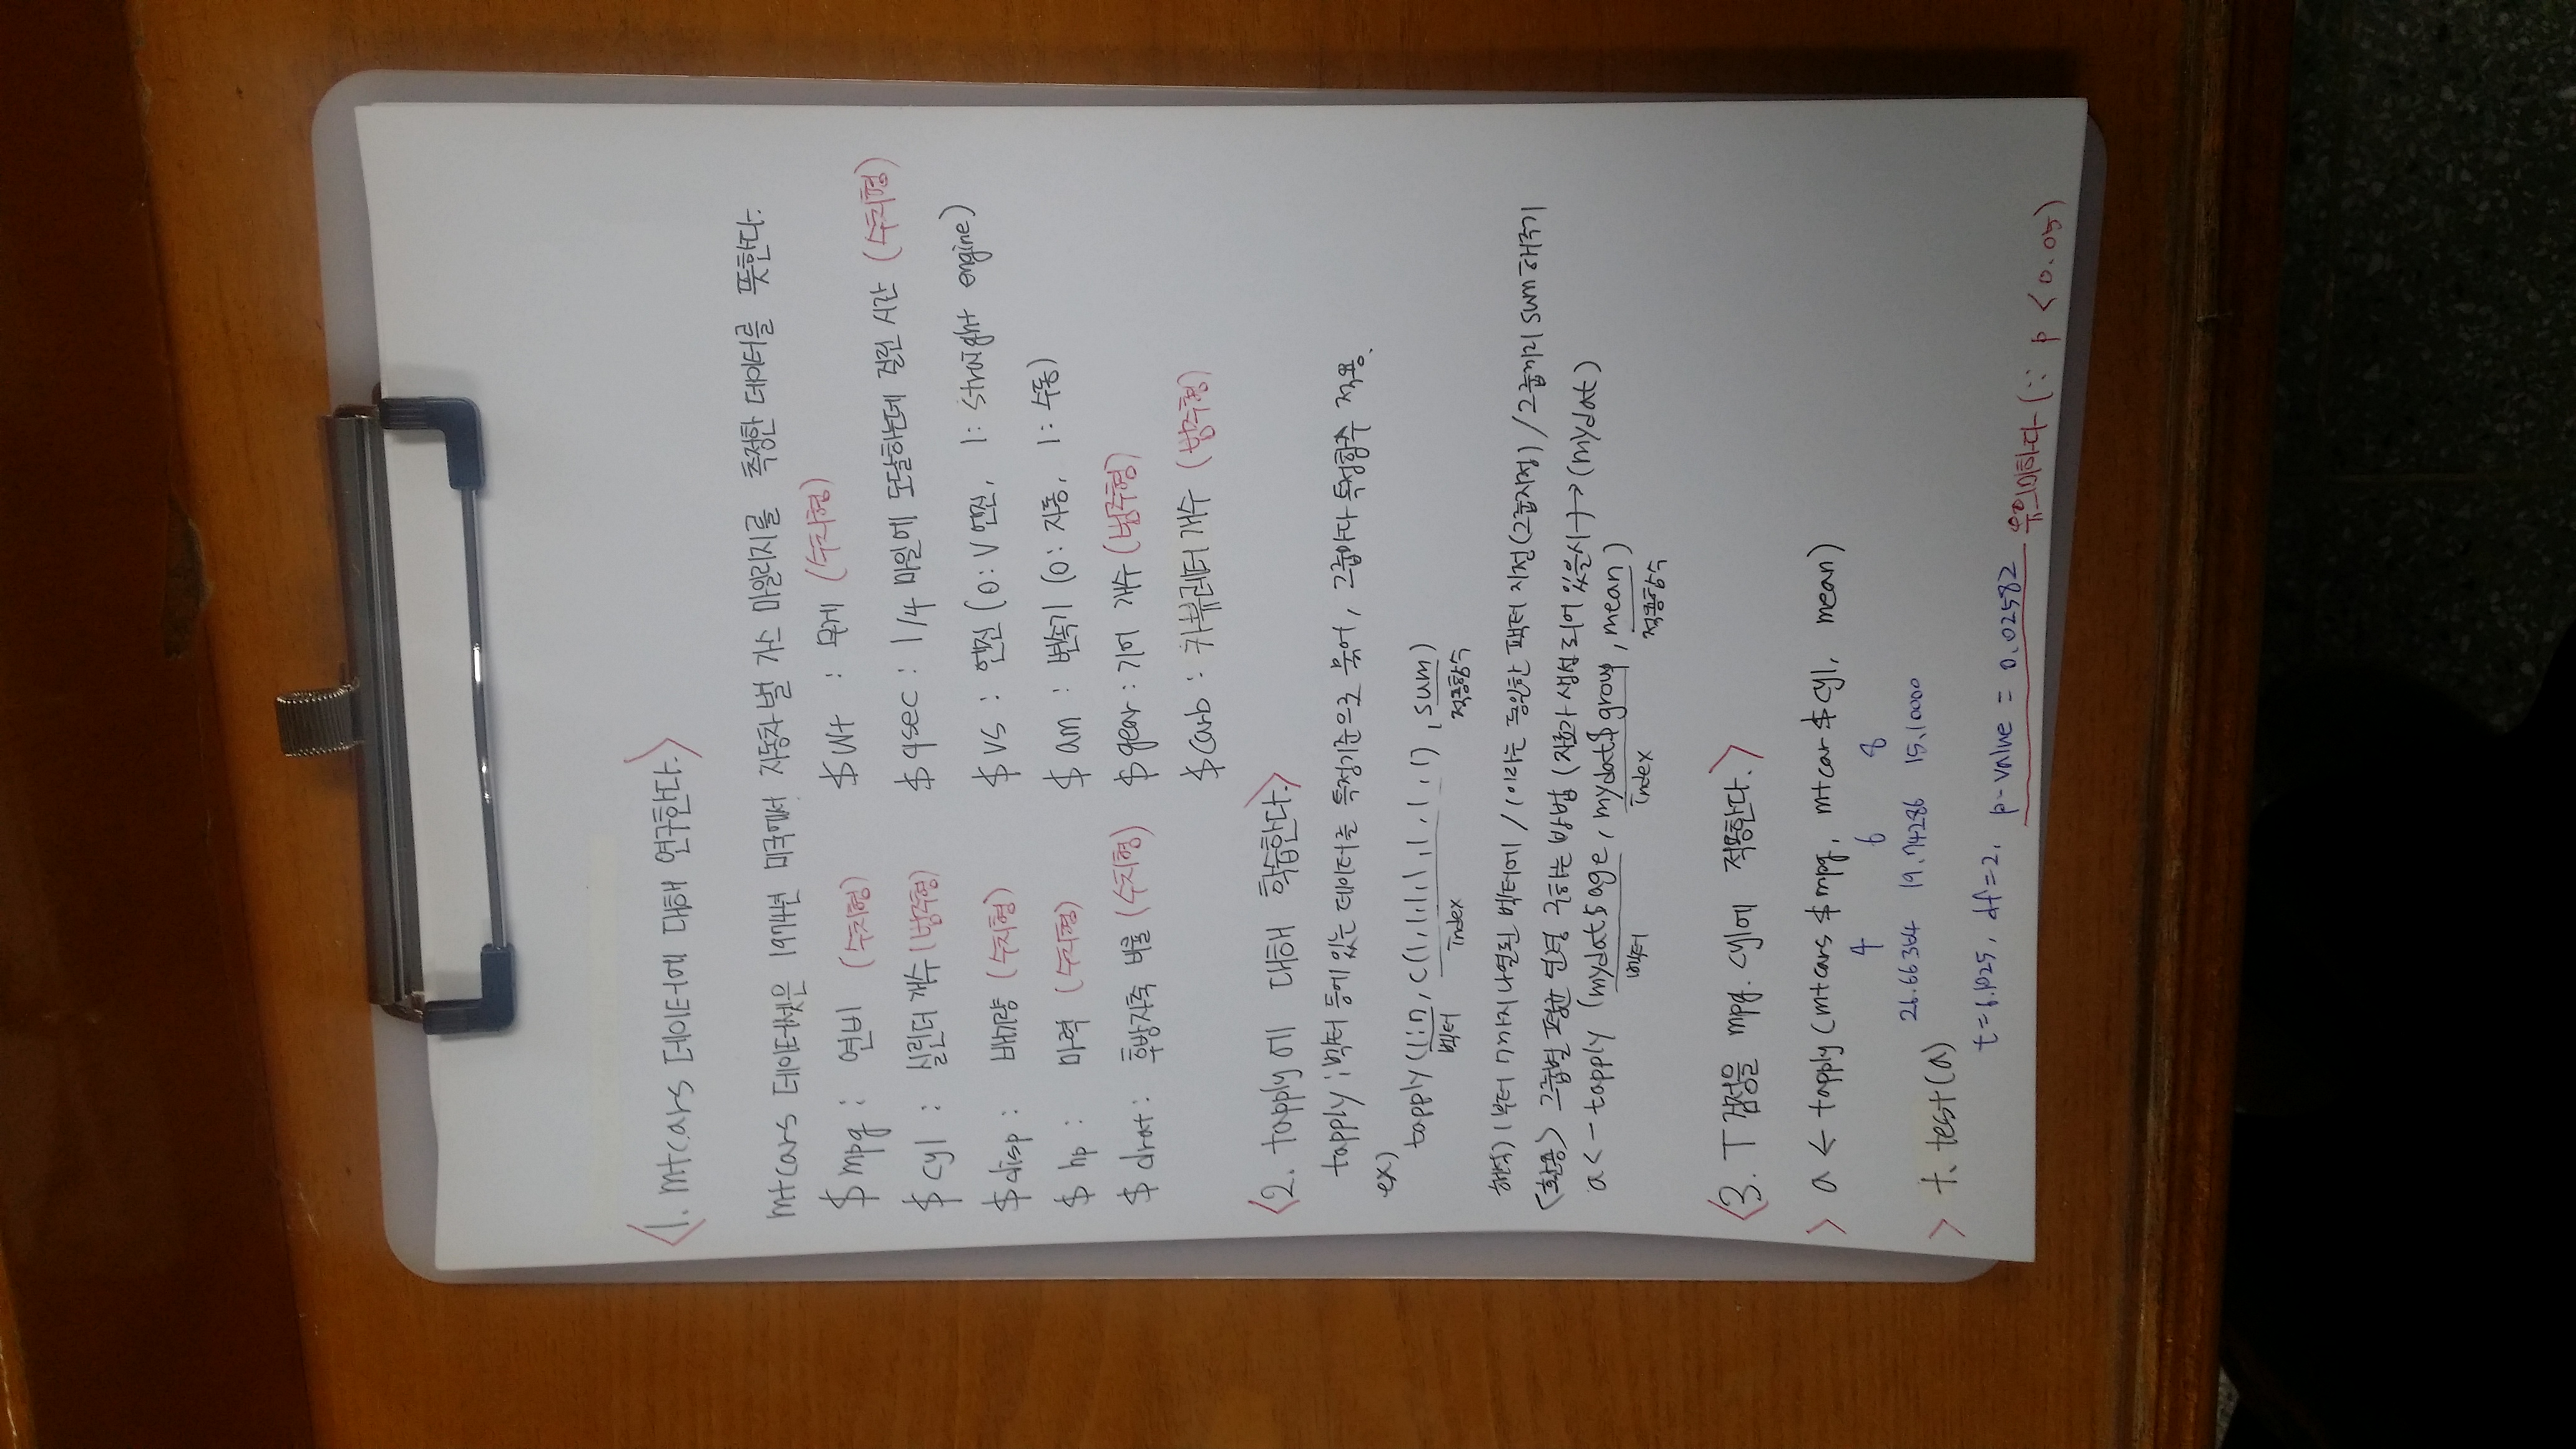 <1. mtcars 데이터에 대해 연구한다.>
mtcars 데이터셋은 1974년 미국에서 자동차별 가스 마일리지를 측정한 데이터를 뜻한다.
$mpg : 연비 (수치형)
$cyl : 실린더 개수 (범주형)
$disp : 배기량 (수치형)
$hp : 마력 (수치형)
$drat : 후방차축 비율 (수치형)
$wt : 무게 (수치형)
$qsec : 1/4 마일에 도달하는데 걸린 시간 (수치형)
$vs : 엔진 (0: V엔진, 1: straight engine)
$am : 변속기 (0: 자동, 1: 수동)
$gear : 기어 개수 (범주형)
$carb : 카뷰레터 개수 (범주형)
<2. tapply에 대해 학습한다.>
tapply ; 벡터 등에 있는 데이터를 특정기준으로 묶어, 그룹마다 특정함수 적용.
ex)
tapply (1:7, c(1,1,1,1,1,1,1), sum)
벡터 index 적용함수
해석) 1부터 7까지 나열된 벡터에 / 1이라는 동일한 팩터 지정(그룹지정) / 그룹끼리 sum 해주기
<활용> 그룹별 평균 연령 구하는 방법 (자료가 생성되어 있을시 → (mydat)
a <- tapply (mydat$age, mydat$group, mean)
벡터 index 적용함수
<3. T검정을 mpg. cyl에 적용한다.>
> a <- tapply (mtcars $mpg, mtcar $cyl, mean)
4 6 8
26.66364 19.74286 15.10000
> t. test(a)
t=6.1025, df=2, p-value = 0.02582 유의미하다 (∵ p < 0.05)